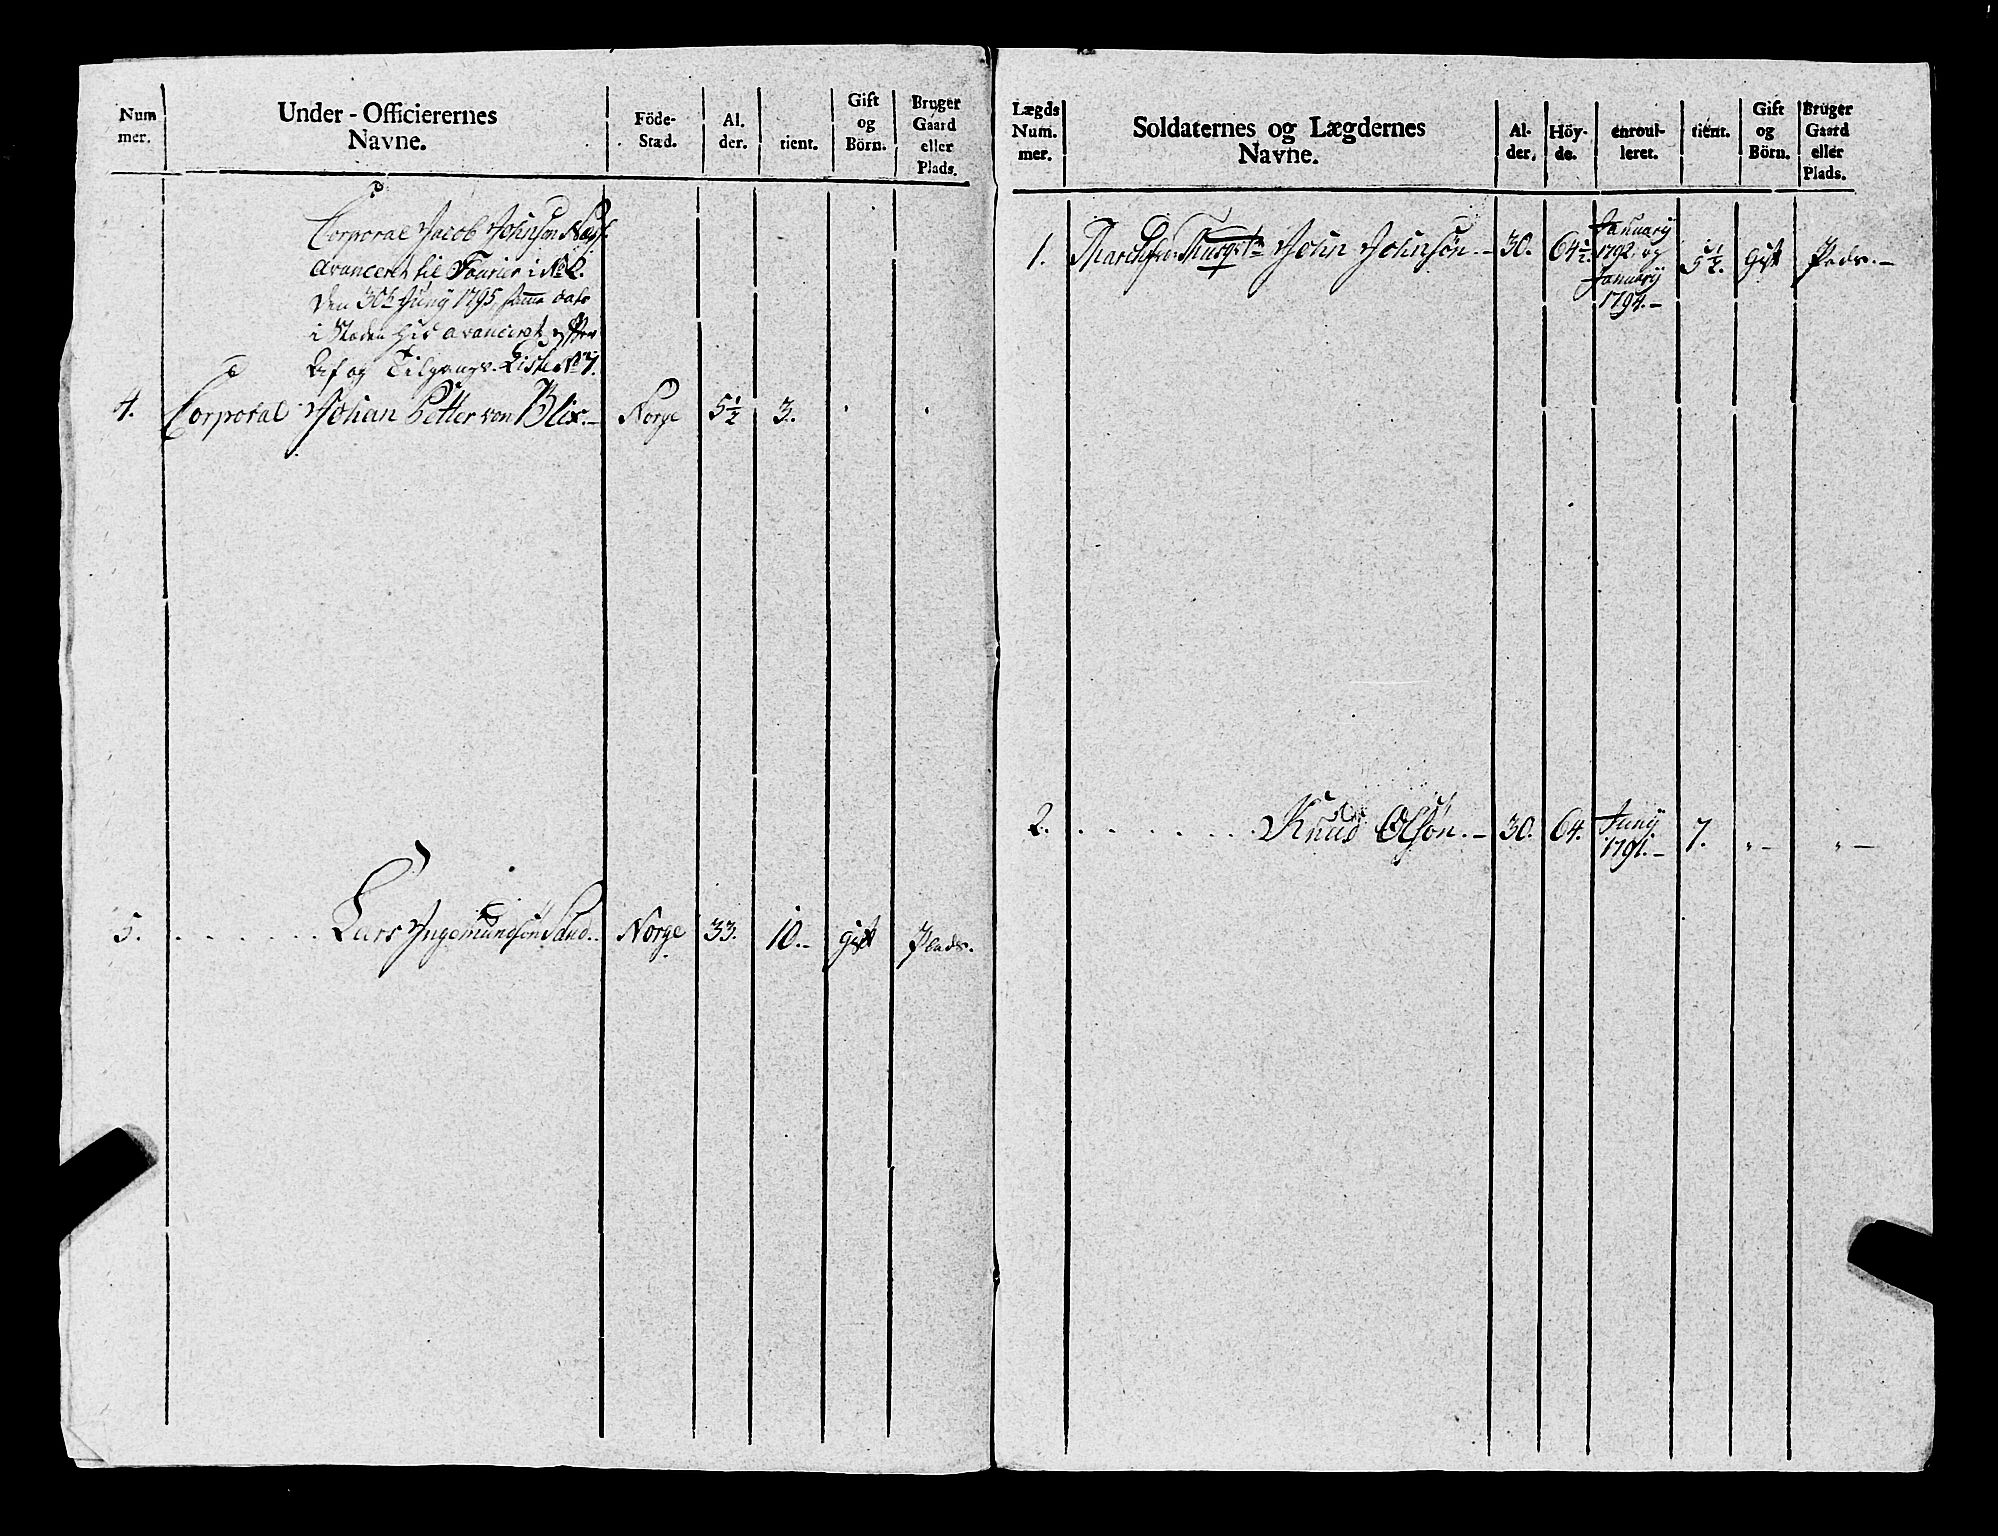 Num
mer.
Under - Officierernes
Navne.
Föde-
Stæd.
Al.
der.
tient.
Gift
og
Börn.
Bruger
Gaard
eller
Plads.
Corporal Jacob Johnsøn
avanceret til Fourier i No 2.
den 30te Juny 1795, samme dato
i Steden her avanceret efter
Af og Tilgangs-Liste No 7.
4. Corporal Johan Petter von Blix.– Norge 5½ 3. . .
5. . . . . . Lars Ingemundsøn Sand. Norge 33. 10.– gift Plads.
Lægds
Num.
mer.
Soldaternes og Lægdernes
Navne.
Al-
der.
Höy-
de.
enroul-
leret.
tient.
Gift
og
Börn.
Bruger
Gaard
eller
Plads.
1. John Johnsøn.– 30. 64½. January 1792. og January 1794.– 5½. gift Plads.–
2. . . . . . . Knud Olsøn.– 30. 64. Juny 1791.– 7. "– "–